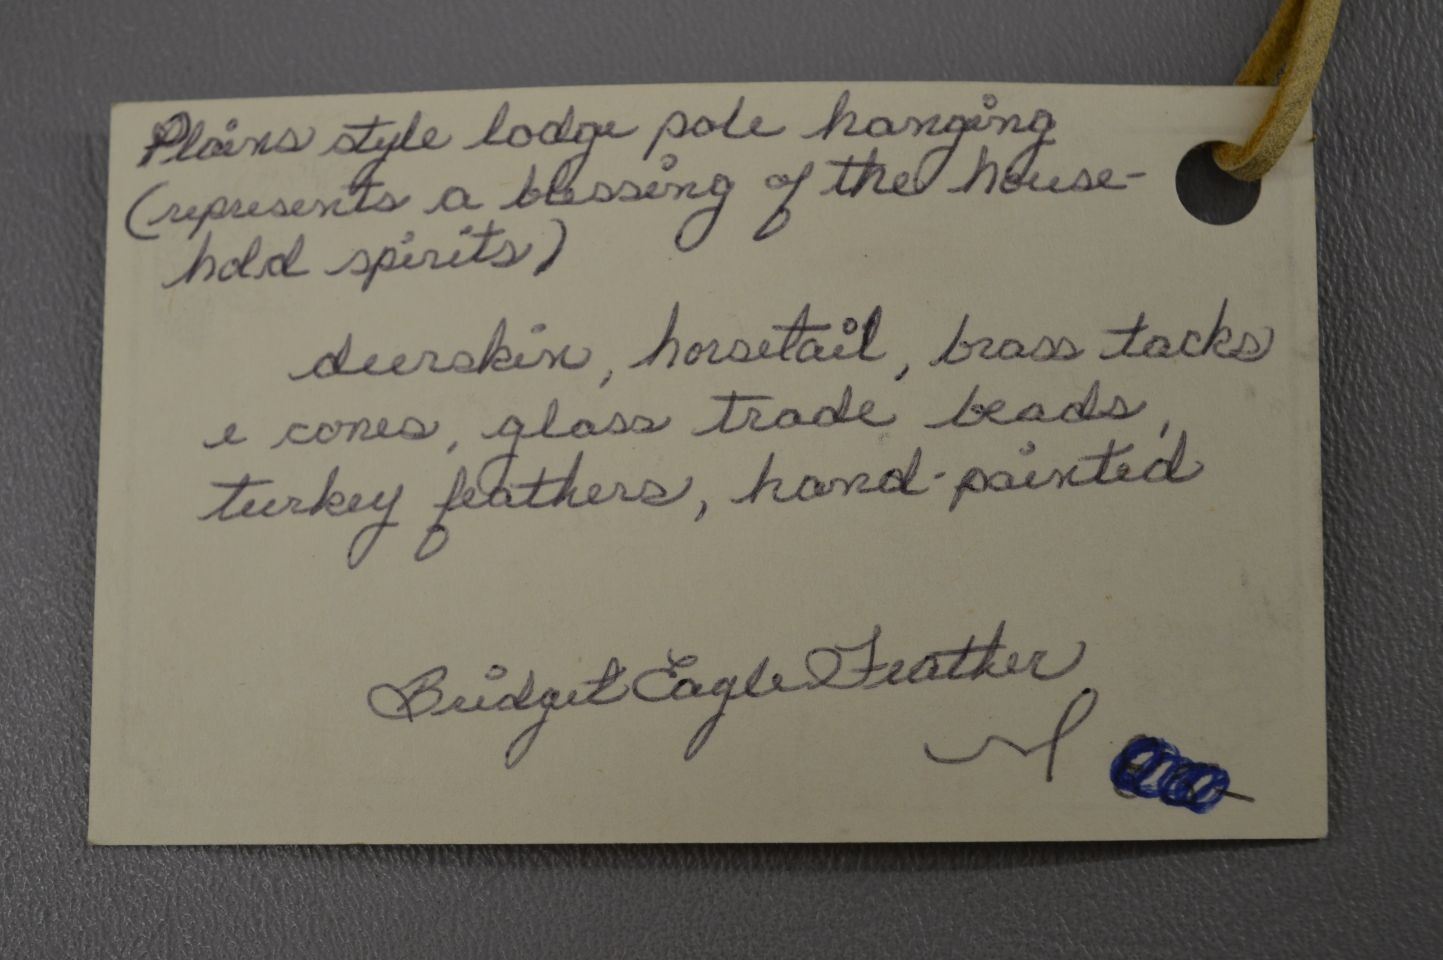 Plains style lodge pole hanging
(represents a blessing of the house-
hold spirits)
deerskin, horsetail, brass tacks
e cones, glass trade beads,
turkey feathers, hand-painted
Bridget Eagle Feather